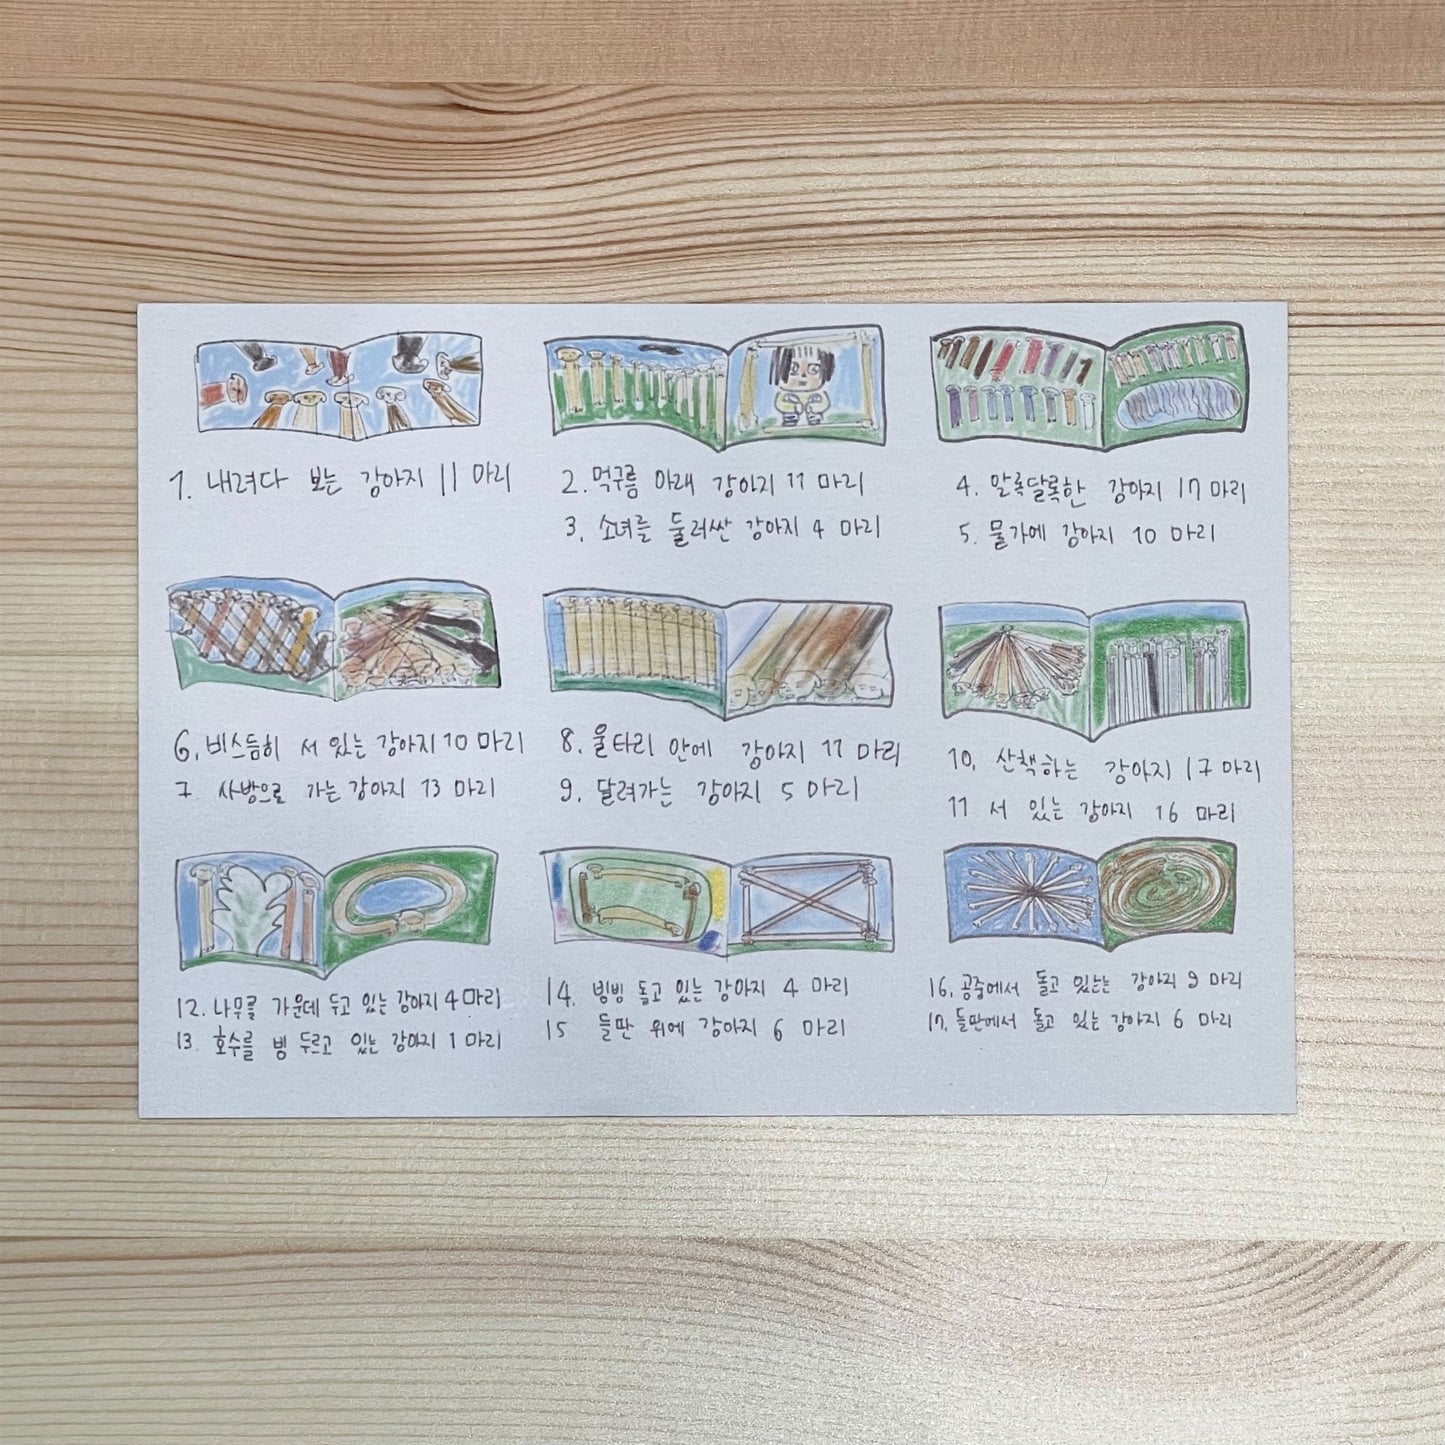 1. 내려다 보는 강아지 11 마리
2. 먹구름 아래 강아지 11 마리
3. 소녀를 둘러싼 강아지 4 마리
4. 알록달록한 강아지 17 마리
5. 물가에 강아지 10 마리
6. 비스듬히 서 있는 강아지 10 마리
7 사방으로 가는 강아지 13 마리
8. 울타리 안에 강아지 11 마리
9. 달려가는 강아지 5 마리
10. 산책하는 강아지 17 마리
11 서 있는 강아지 16 마리
12. 나무를 가운데 두고 있는 강아지 4 마리
13. 호수를 빙 두르고 있는 강아지 1 마리
14. 빙빙 돌고 있는 강아지 4 마리
15 들판 위에 강아지 6 마리
16. 공중에서 돌고 있는는 강아지 9 마리
17. 들판에서 돌고 있는 강아지 6 마리